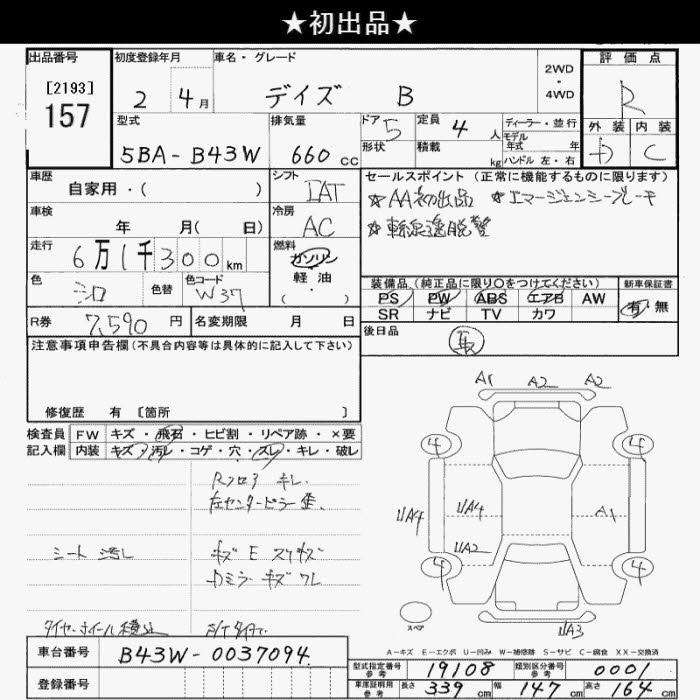 ★初出品★
出品番号
[2193]
157
初度登録年月
2 4月
車名・グレード
デイズ B
2WD
・
4WD
評価点
R
外装 内装
D C
型式
5BA-B43W
排気量
660 cc
ドア 5
形状
定員 4 人
積載 kg
ディーラー・並行
モデル年式 年
ハンドル 左・右
車歴
自家用・( )
シフト
IAT
セールスポイント (正常に機能するものに限ります)
☆AA初出品 ☆エマージェンシーブレーキ
☆車線逸脱警
車検
年 月( 日)
冷房
AC
走行
6万1千300km
燃料
ガソリン
軽油
( ・ )
色
シロ
色替
色コード
W37
装備品 (純正品に限り○をつけてください)
PS PW ABS エアB AW
SR ナビ TV カワ
新車保証書
有・無
R券 7,590 円
名変期限 月 日
後日品
取
注意事項申告欄 (不具合内容等は具体的に記入して下さい)
修復歴 有 [箇所 ]
検査員
記入欄
FW キズ・飛石・ヒビ割・リペア跡・×要
内装 キズ・汚レ・コゲ・穴・スレ・キレ・破レ
Rフロア キレ
左センターピラー歪
シート 汚レ
キズ E スリキズ
タイヤ・ホイール積込
車台番号 B43W-0037094
登録番号
A1 A2 A2
4 4
A4 A4 A1
A2
4 4
スペア
A3
A-キズ E-エクボ U-凹み W-補修跡 S-サビ C-腐食 XX-交換済
型式指定番号 参考 19108
類別区分番号 参考 0001
車庫証明用 参考 長さ 339 cm 幅 147 cm 高さ 164 cm